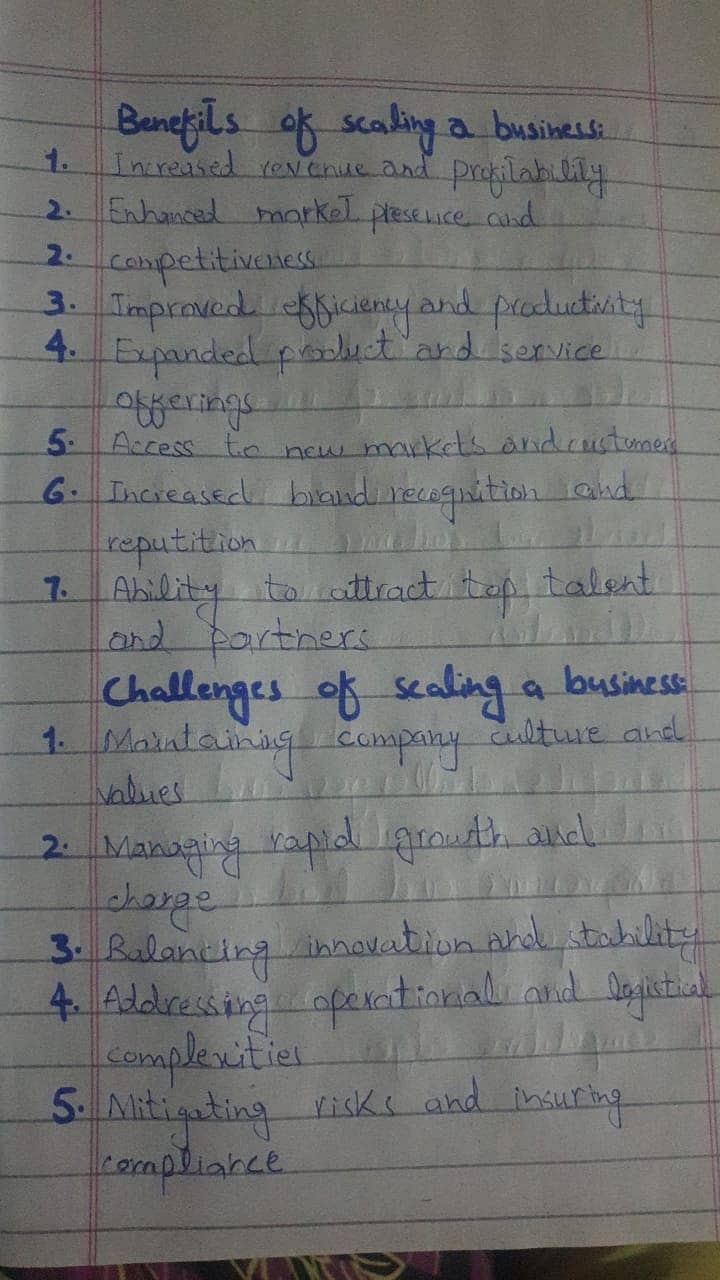 Benefits of scaling a business:
1. Increased revenue and profitability
2. Enhanced market presence and
2. competitiveness
3. Improved efficiency and productivity
4. Expanded product and service
offerings
5. Access to new markets and customers
6. Increased brand recognition and
reputition
7. Ability to attract top talent
and partners
Challenges of scaling a business:
1. Maintaining company culture and
values
2. Managing rapid growth and
charge
3. Balancing innovation and stability
4. Addressing operational and logistical
complexities
5. Mitigating risks and insuring
compliance